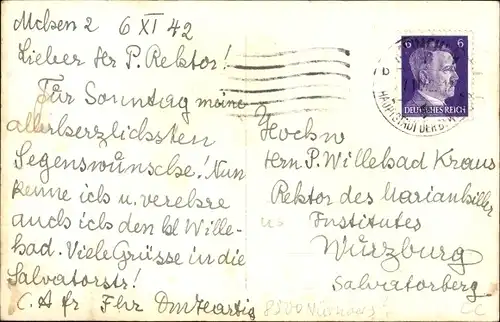 Mchen 2 6 XI 42
Lieber Hr P. Rektor!
Für Sonntag meine
allerherzlichsten
Segenswünsche! Nun
kenne ich u. verehre
auch ich den hl Wille-
had. Viele Grüsse in die
Salvatorstr!
C. A fr Fhr
6 6
DEUTSCHES REICH
HAUPTSTADT DER
Hochw
Herrn P. Willehad Kraus
Rektor des Marianhiller
Institutes
Würzburg
Salvatorberg